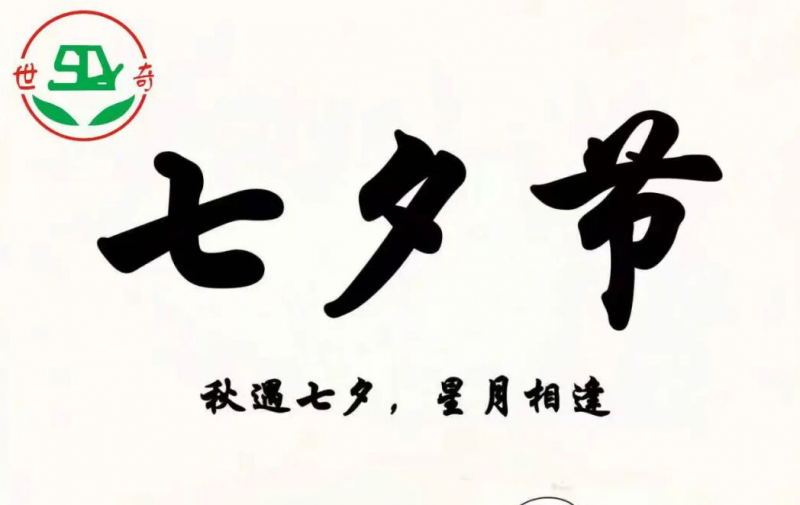 世奇
七夕节
秋遇七夕，星月相逢